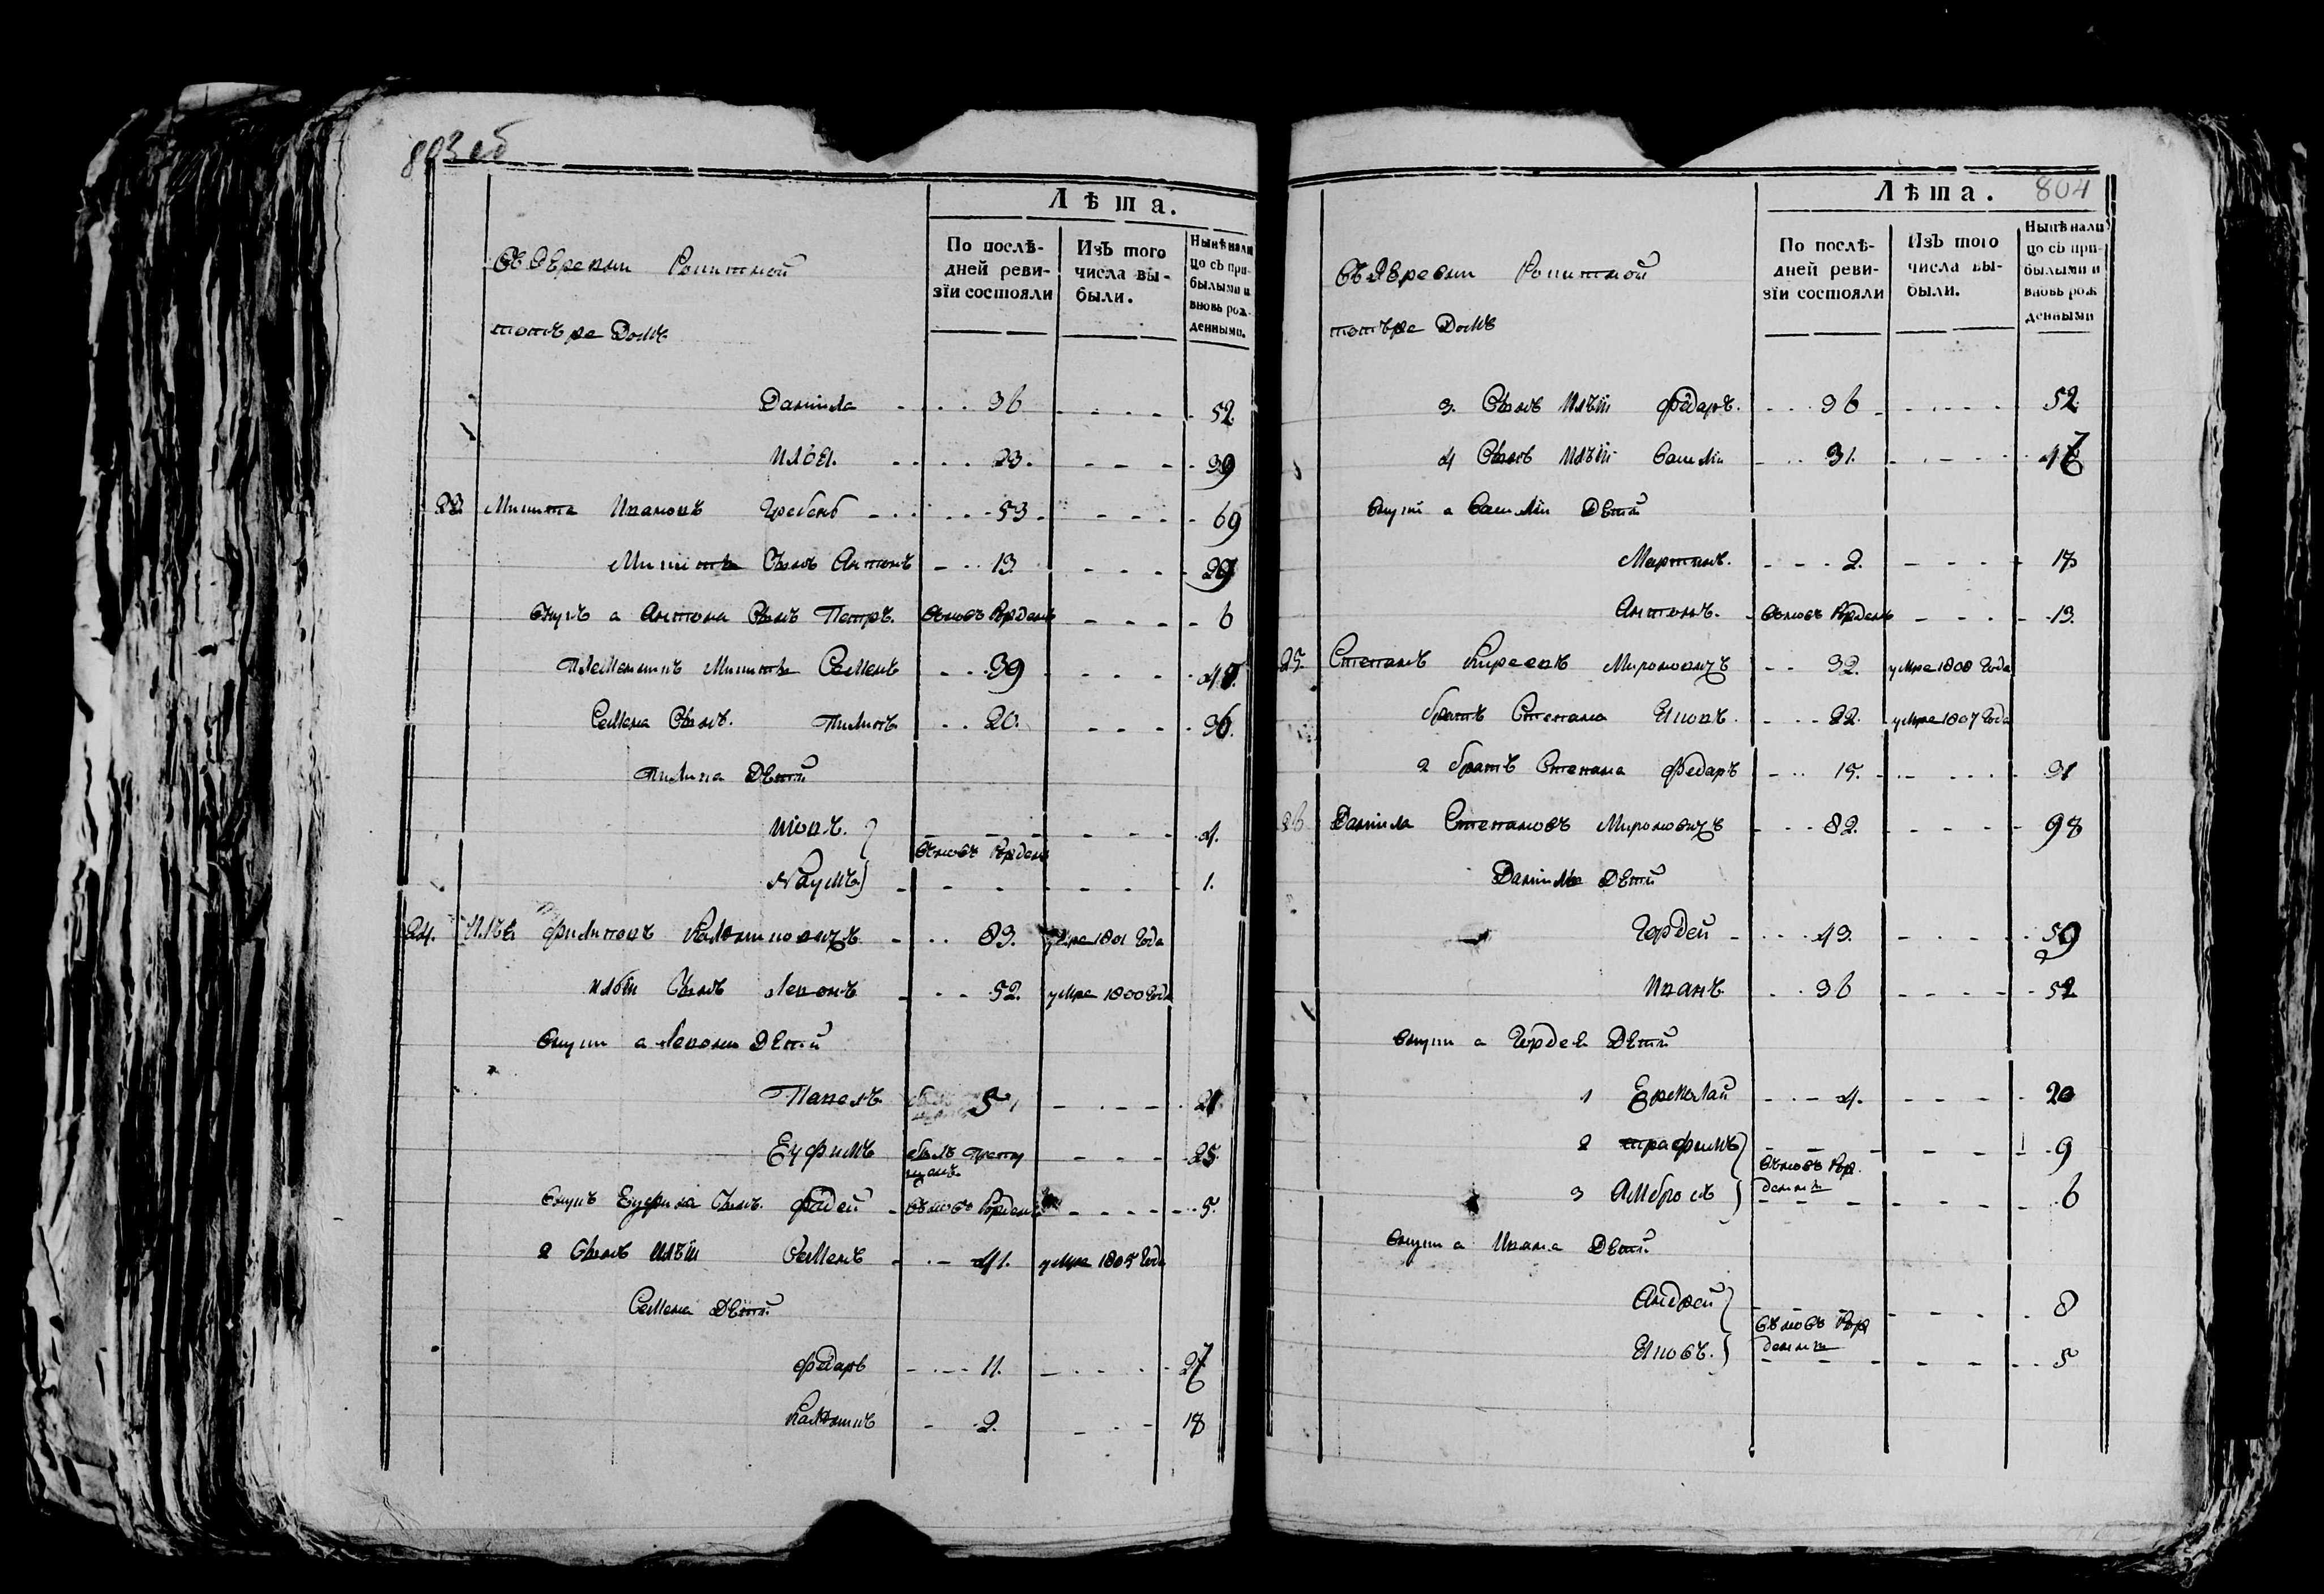 803 об
Лѣта.
въ деревни Ракитной
По послѣ-
дней реви-
зіи состояли
Изъ того
числа вы-
были.
Нынѣ нали
цо съ при-
былыми и
вновь рож-
денными.
тотъ же домъ
Данила 36 52
Илья. 23. 39
23. Микита Ивановъ Гребень 53 69
Микиты Сынъ Антонъ 13. 29
внукъ а Антона Сынъ Петръ. вновь рожденъ 6
племяникъ Микиты Семенъ 39
Семена Сынъ. Пилипъ 20. 36.
Пилипа Дѣти
вновь рожден 4.
Наумъ 1.
24. Илья Филиповъ 83. умре 1801 года
Ильи Сынъ Левонъ 52. умре 1800 года
внуки а Левона Дѣти
Павелъ 5, 21
Еуфимъ былъ пропу
щенъ 25
внукъ Еуфима Сынъ. Фадей вновь рожденъ 5.
2 Сынъ Ильи Семенъ 41. умре 1805 года
Семена Дѣти.
Федаръ 11. 27
2. 18
804
Лѣта.
въ деревни Ракитной
По послѣ-
дней реви-
зіи состояли
Изъ того
числа вы-
были.
Нынѣ нали
цо съ при-
былыми и
вновь рож
денными
тотъ же домъ
3. Сынъ Ильи Федаръ. 36 52
4 Сынъ Ильи Васили 31. 47
внуки а Васили Дѣти
Мартинъ. 2. 18
Антонъ. вновь рожденъ 13.
25. Степанъ Киреевъ Мироновичъ 32. умре 1808 года
братъ Степана Яковъ. 22. умре 1807 года
2 братъ Степана Федаръ 15. 31
26 Данила Степановъ Мироновичъ 82. 98
Данилы Дѣти
Гордей 43. 59
Иванъ. 36 52
внуки а Гордея Дѣти
1 Ермолай 4. 20
2 Трафимъ 9
вновь рож
дены
3 Амбросъ 6
внуки а Ивана Дѣти
Андрей 8
вновь рож
дены
Яковъ. 5